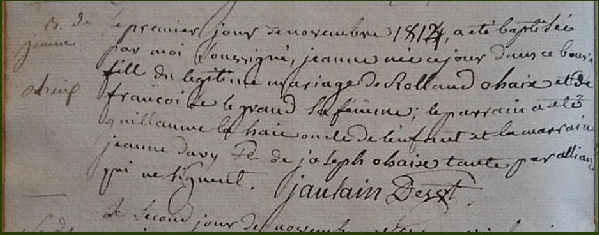 B. de le premier jour de novembre 1814, a été baptisée
jeanne par moi soussigné, jeanne née ce jour dans ce bourg
fille du legitime mariage de Rolland ohaix et de
françoise le grand sa femme; le parrain a été
guillaume ohaix oncle de l'enfant et la marraine
jeanne davy Fe de joseph ohaix tante par allian
qui ne signent. Jautain Dess.t
le second jour de novembre